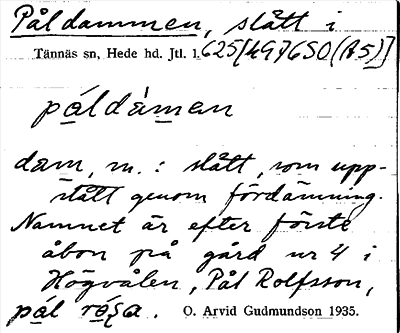 Påldammen, slått i
Tännäs sn, Hede hd. Jtl. 1.625[497650(A5)]
páldámen
dam, m.: slått, som upp-
stått genom fördämning.
Namnet är efter förste
åbon på gård nr 4 i
Högvålen, Pål Rolfsson,
pál O. Arvid Gudmundson 1935.